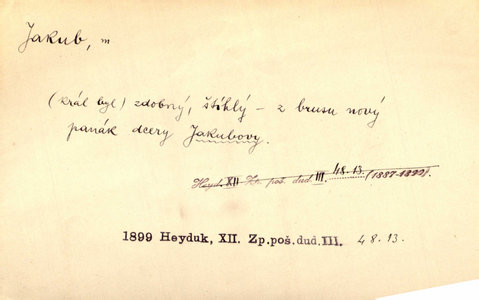 Jakub, m
(král byl) zdobný, štíhlý – z brusu nový
panák dcery Jakubovy.
Heyd. XII. Zp. poš. dud. III. 48. 13. (1887-1899).
1899 Heyduk, XII. Zp.poš.dud.III. 48.13.